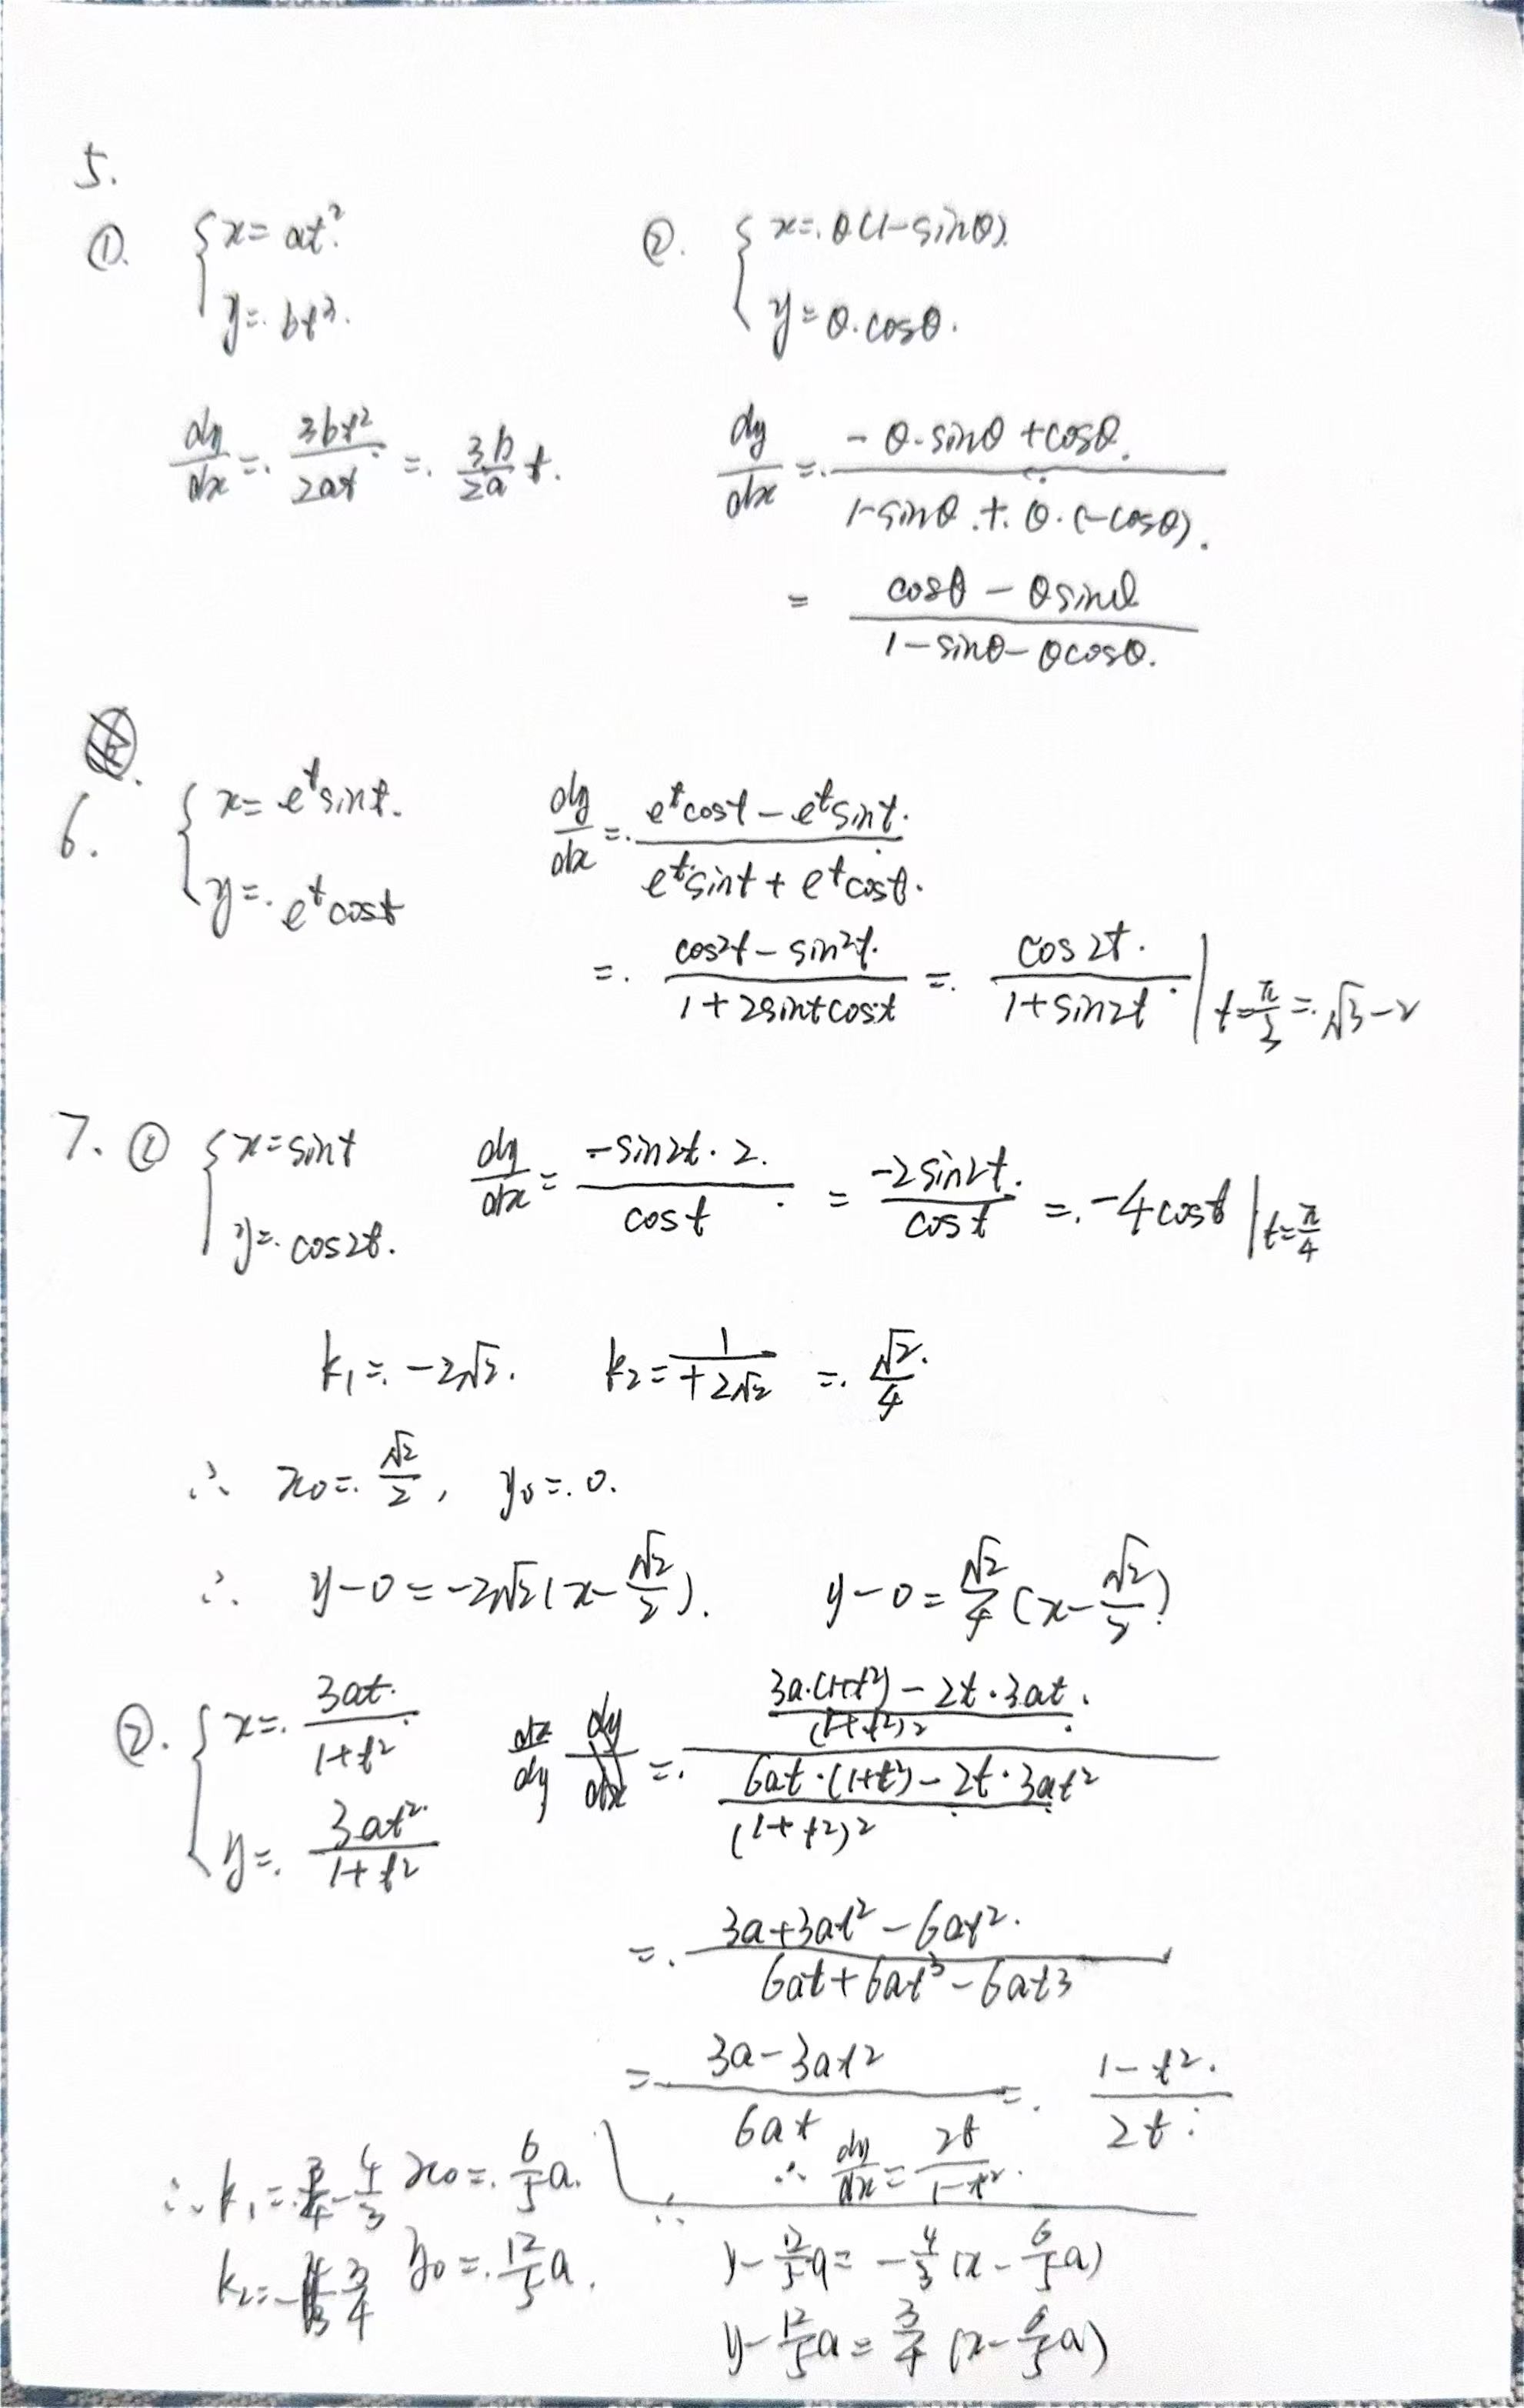 5.
① { x = at²    ② { x = θ(1-sinθ).
y = bt³.    y = θ·cosθ.
dy/dx = 3bt²/2at = 3b/2a t.    dy/dx = (-θ·sinθ+cosθ.)/(1-sinθ+θ·(-cosθ).)
= (cosθ-θsinθ)/(1-sinθ-θcosθ.)
6. { x = e^t sint.    dy/dx = (e^t cost - e^t sint.)/(e^t sint + e^t cost.)
y = e^t cost
= (cos²t - sin²t.)/(1+2sintcost) = cos2t./(1+sin2t) |t=π/3 = √3-2
7. ① { x = sint    dy/dx = (-sin2t·2.)/cost = -2sin2t./cost = -4cost |t=π/4
y = cos2t.
k₁ = -2√2.    k₂ = 1/(+2√2) = √2/4
∴ x₀ = √2/2, y₀ = 0.
∴ y-0 = -2√2(x-√2/2).    y-0 = √2/4(x-√2/2)
② { x = 3at/(1+t²)    dx/dy = ((3a·(1+t²)-2t·3at)/(1+t²)²)/((6at·(1+t²)-2t·3at²)/(1+t²)²)
y = 3at²/(1+t²)
= (3a+3at²-6at²)/(6at+6at³-6at³)
= (3a-3at²)/6at = (1-t²)/2t
∴ dy/dx = 2t/(1-t²)
∴ k₁ = -4/3    x₀ = 6/5 a.
k₂ = 3/4    y₀ = 12/5 a.
∴ y-12/5 a = -4/3(x-6/5 a)
y-12/5 a = 3/4(x-6/5 a)